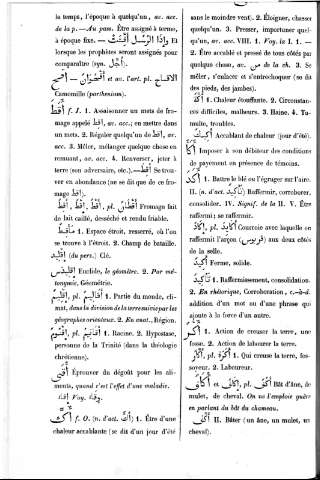 la temps, l'époque à quelqu'un, av. acc.
de la p. — Au pass. Être assigné à terme,
à époque fixe. — وإذا الرسل أُقِّتَتْ Et
lorsque les prophètes seront assignés pour
comparaître (syn. أجل).
أقحوان et av. l'art. pl. الاقاح — أقح
Camomille (parthenium).
أقط f. I. 1. Assaisonner un mets de fro-
mage appelé أقط, av. acc.; en mettre dans
un mets. 2. Régaler quelqu'un de أقط, av.
acc. 3. Mêler, mélanger quelque chose en
remuant, av. acc. 4. Renverser, jeter à
terre (son adversaire, etc.). — Se trou-
ver en abondance (se dit que de ce fro-
mage أقط).
أقط, pl. أقطان Fromage fait
de lait caillé, desséché et rendu friable.
مأقط 1. Espace étroit, resserré, où l'on
se trouve à l'étroit. 2. Champ de bataille.
إقليد (du pers.) Clé.
إقليدس Euclide, le géomètre. 2. Par mé-
tonymie, Géométrie.
إقليم, pl. أقاليم 1. Partie du monde, cli-
mat, dans la division de la terre suivie par les
géographes orientaux. 2. En mat., Région.
أقنوم, pl. أقانيم 1. Racine. 2. Hypostase,
personne de la Trinité (dans la théologie
chrétienne).
أقى Éprouver du dégoût pour les ali-
ments, quand c'est l'effet d'une maladie.
Voy.
أكّ f. O. (n. d'act. أكّ) 1. Être d'une
chaleur accablante (se dit d'un jour d'été
sans le moindre vent). 2. Éloigner, chasser
quelqu'un. 3. Presser, importuner quel-
qu'un, av. acc. VIII. 1. Voy. la I. 1. —
2. Être accablé et pressé de tous côtés par
quelque chose, av. من de la ch. 3. Se
mêler, s'enlacer et s'entrechoquer (se dit
des pieds, des jambes).
أكّة 1. Chaleur étouffante. 2. Circonstan-
ces difficiles, malheurs. 3. Haine. 4. Tu-
multe, troubles.
أكيك Accablant de chaleur (jour d'été).
أكأ Imposer à son débiteur des conditions
de payement en présence de témoins.
أكد 1. Battre le blé ou l'égruger sur l'aire.
II. (n. d'act. تأكيد) Raffermir, corroborer,
consolider. IV. Signif. de la II. V. Être
raffermi; se raffermir.
إكاد, pl. Courroie avec laquelle on
raffermit l'arçon (قربوس) aux deux côtés
de la selle.
أكيد Ferme, solide.
تأكيد 1. Raffermissement, consolidation.
2. En rhétorique, Corroboration, c.-à-d.
addition d'un mot ou d'une phrase qui
ajoute à la force d'un autre.
أكر 1. Action de creuser la terre, une
fosse. 2. Action de labourer la terre.
أكّار, pl. أكرة 1. Qui creuse la terre, fos-
soyeur. 2. Laboureur.
إكاف et أكاف, pl. أكف Bât d'âne, de
mulet, de cheval. On ne l'emploie guère
en parlant du bât du chameau.
أكف II. Bâter (un âne, un mulet, un
cheval).